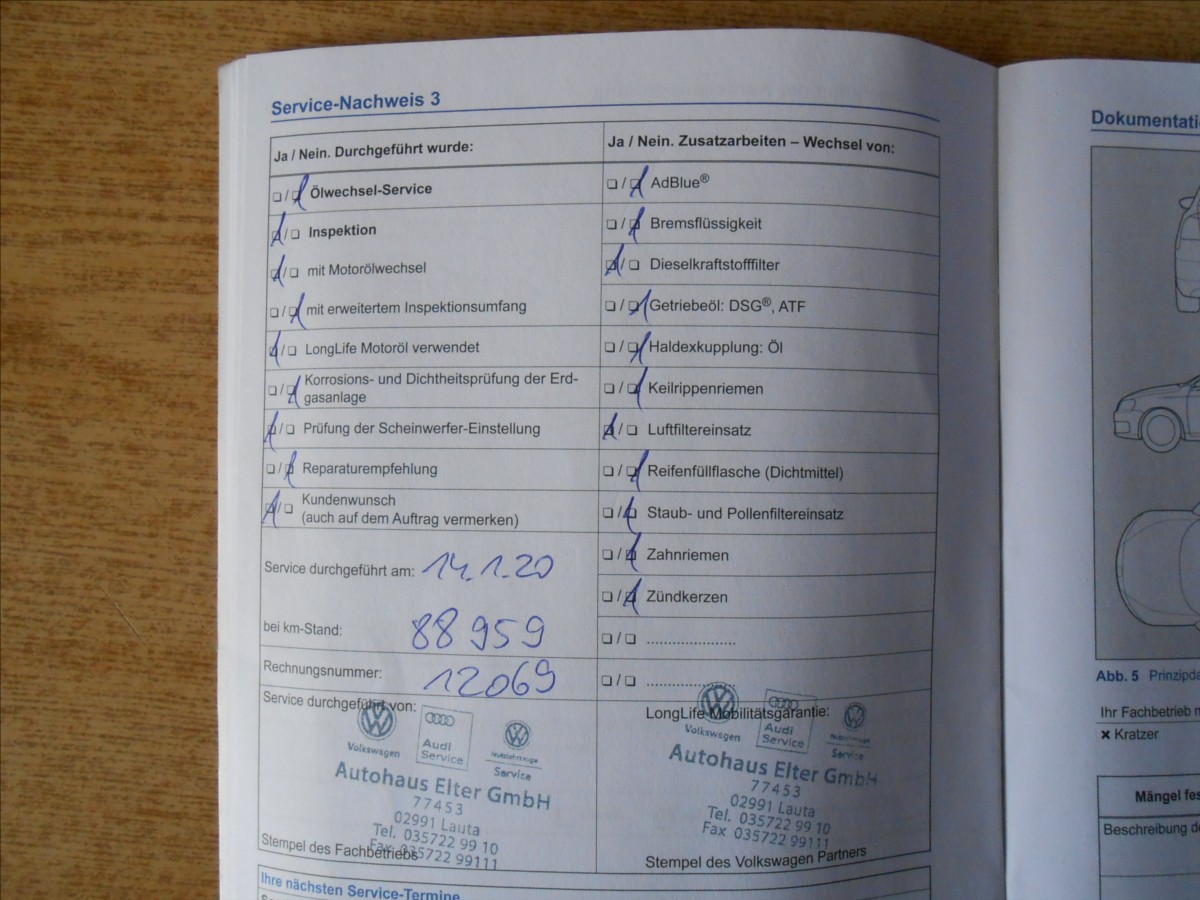 Service-Nachweis 3
Ja / Nein. Durchgeführt wurde:
❏ / ❏ Ölwechsel-Service
❏ / ❏ Inspektion
❏ / ❏ mit Motorölwechsel
❏ / ❏ mit erweitertem Inspektionsumfang
❏ / ❏ LongLife Motoröl verwendet
❏ / ❏ Korrosions- und Dichtheitsprüfung der Erd-
gasanlage
❏ / ❏ Prüfung der Scheinwerfer-Einstellung
❏ / ❏ Reparaturempfehlung
❏ / ❏ Kundenwunsch
(auch auf dem Auftrag vermerken)
Service durchgeführt am: 14.1.20
bei km-Stand: 88959
Rechnungsnummer: 12069
Service durchgeführt von:
Volkswagen
Audi
Service
Nutzfahrzeuge
Service
Autohaus Elter GmbH
77453
02991 Lauta
Tel. 035722 99 10
Fax 035722 99111
Stempel des Fachbetriebs
Ja / Nein. Zusatzarbeiten – Wechsel von:
❏ / ❏ AdBlue®
❏ / ❏ Bremsflüssigkeit
❏ / ❏ Dieselkraftstofffilter
❏ / ❏ Getriebeöl: DSG®, ATF
❏ / ❏ Haldexkupplung: Öl
❏ / ❏ Keilrippenriemen
❏ / ❏ Luftfiltereinsatz
❏ / ❏ Reifenfüllflasche (Dichtmittel)
❏ / ❏ Staub- und Pollenfiltereinsatz
❏ / ❏ Zahnriemen
❏ / ❏ Zündkerzen
❏ / ❏ ......................
❏ / ❏ ......................
LongLife Mobilitätsgarantie:
Volkswagen
Audi
Service
Nutzfahrzeuge
Service
Autohaus Elter GmbH
77453
02991 Lauta
Tel. 035722 99 10
Fax 035722 99111
Stempel des Volkswagen Partners
Ihre nächsten Service-Termine
Dokumentati
Abb. 5 Prinzipda
Ihr Fachbetrieb
× Kratzer
Mängel fes
Beschreibung de